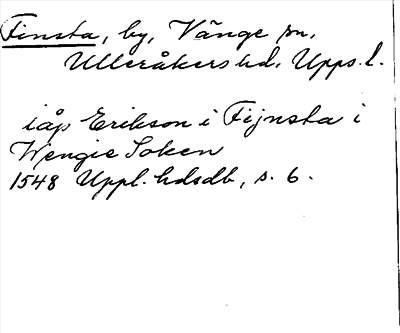 Finsta, by, Vänge sn,
Ulleråkers hd, Upps. l.
iåp Erikson i Fijnsta i
Wengie Soken
1548 Uppl. hdsdb, s. 6.